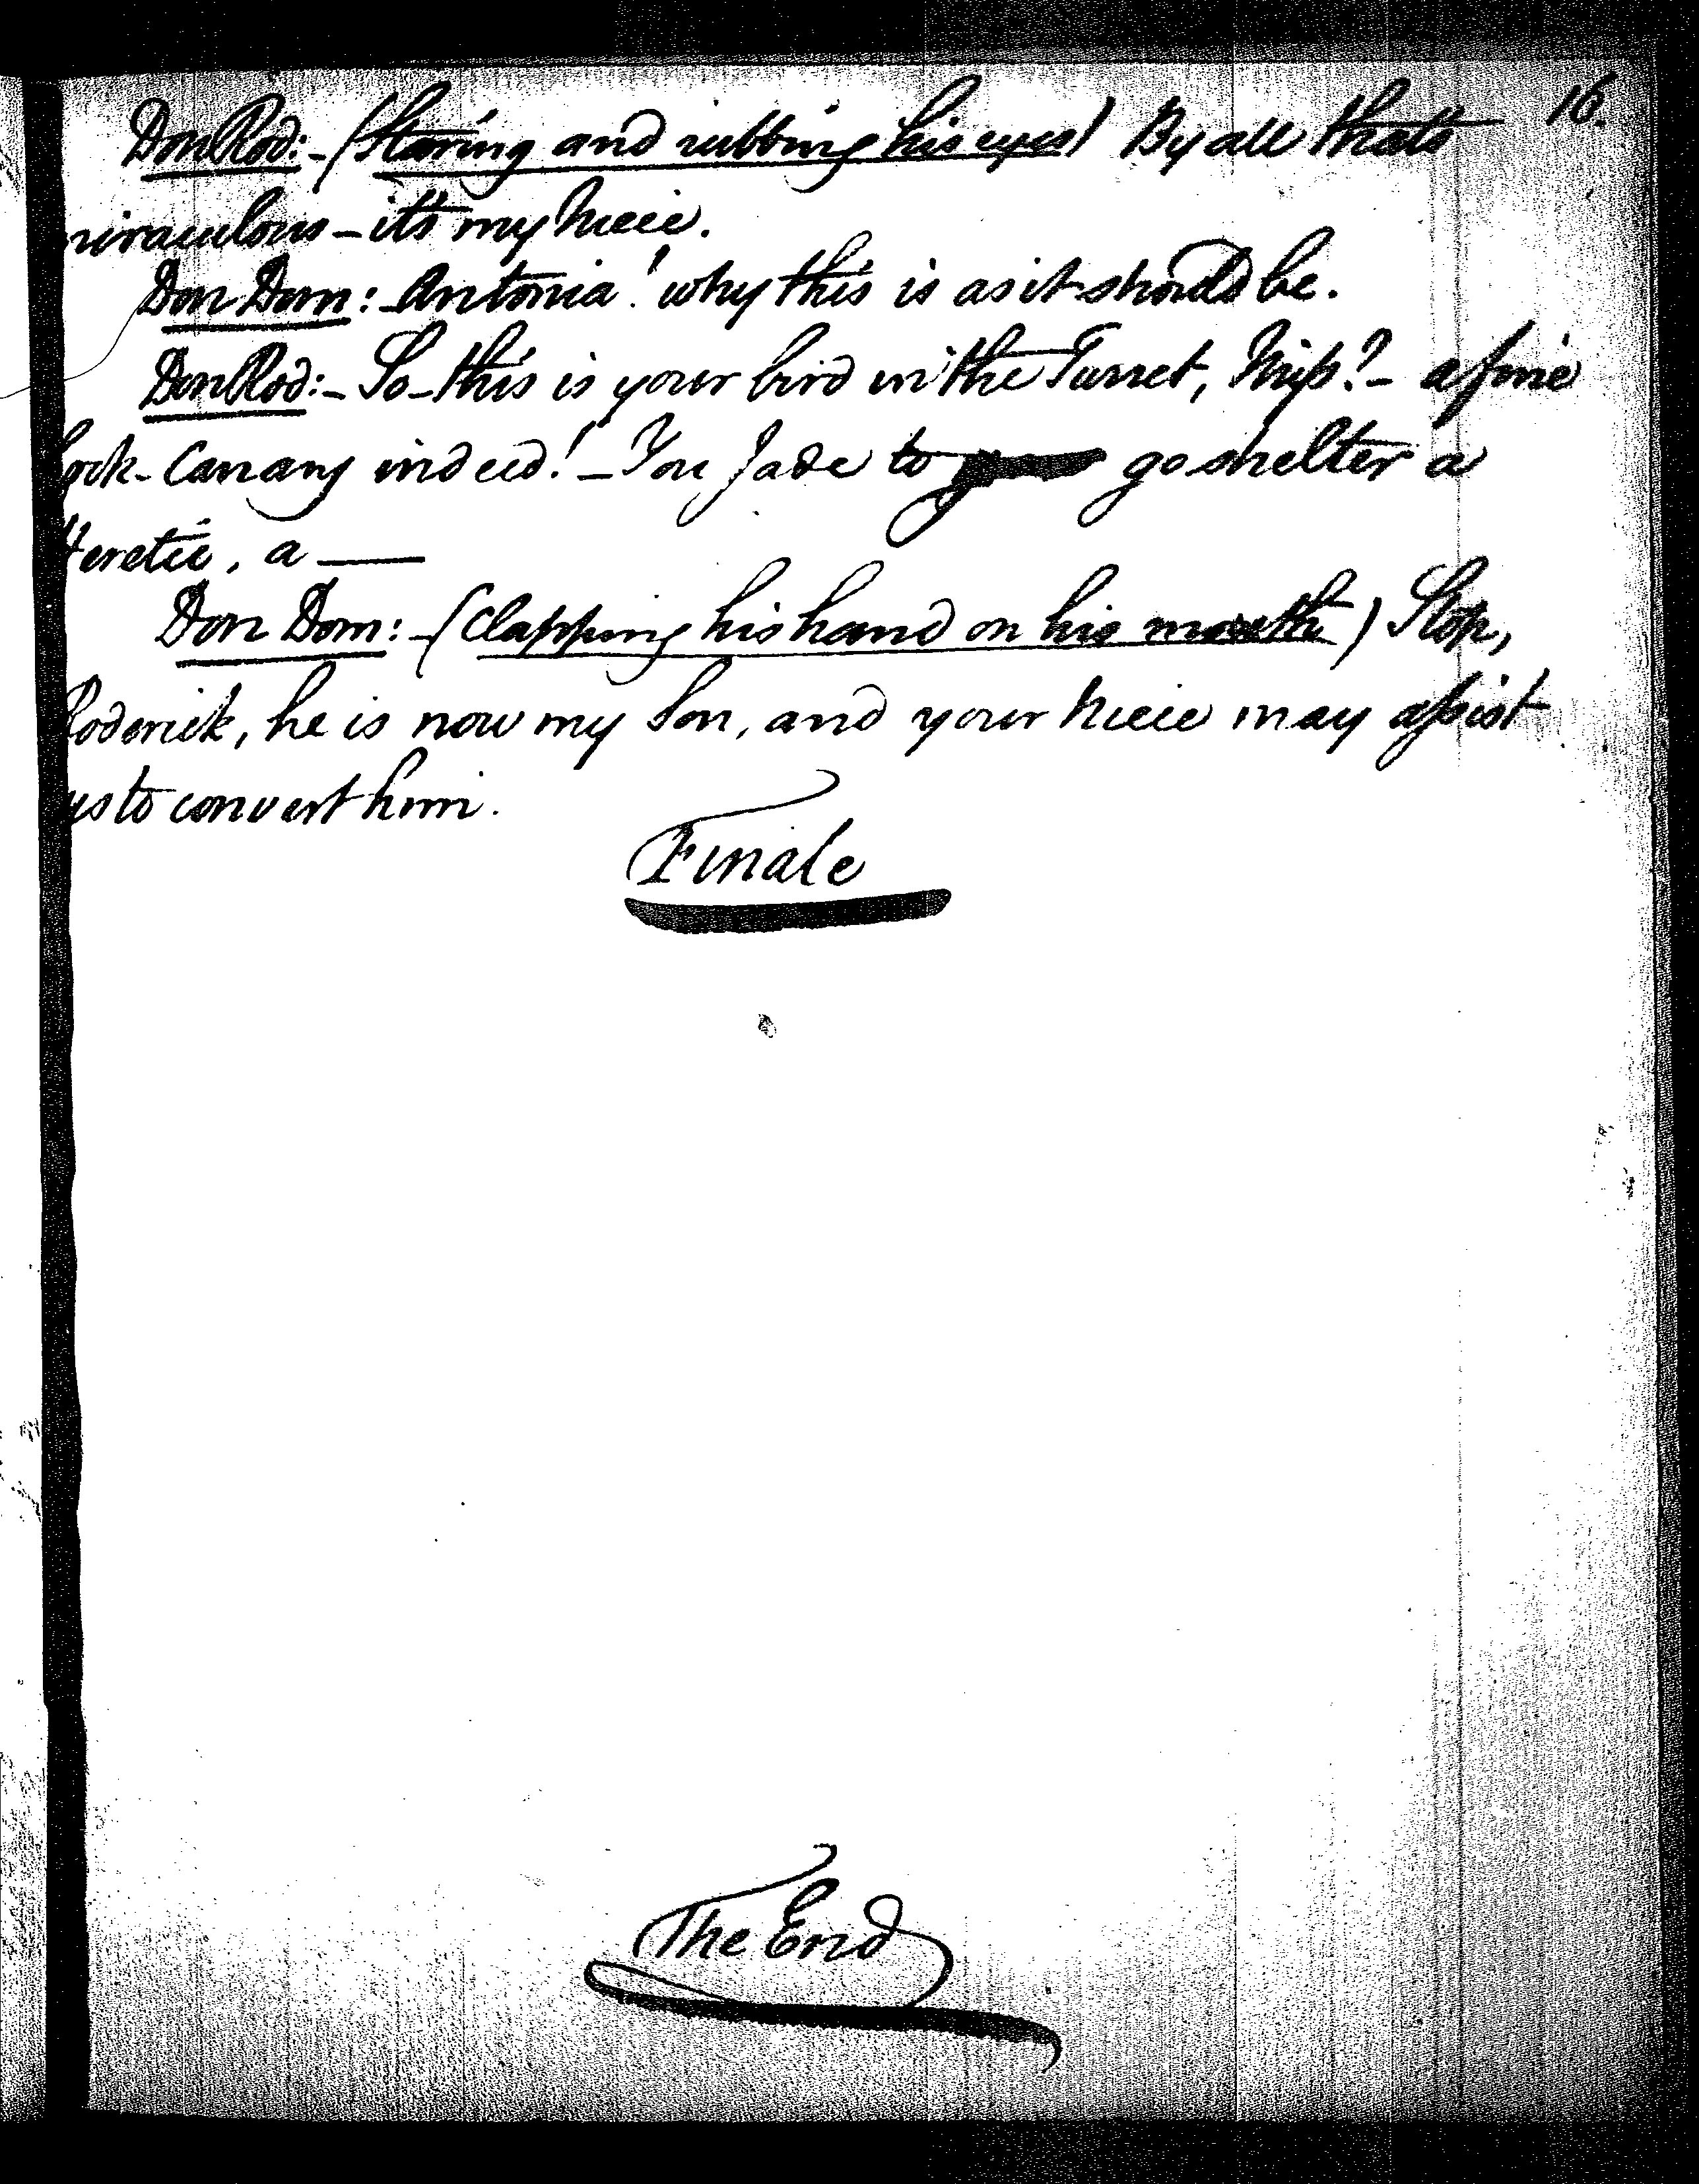 16.
Don Rod:- (Staring and rubbing his eyes) By all thats
miraculous - it's my Niece.
Don Dom: - Antonia! why this is as it should be.
Don Rod: - So - this is your bird in the Turret, Miss? - a fine
Cock-Canary indeed! - You Jade to go shelter a
Heretic, a ——
Don Dom: - (Clapping his hand on his mouth) Stop,
Roderick, he is now my Son, and your Niece may assist
us to convert him.
Finale
The End